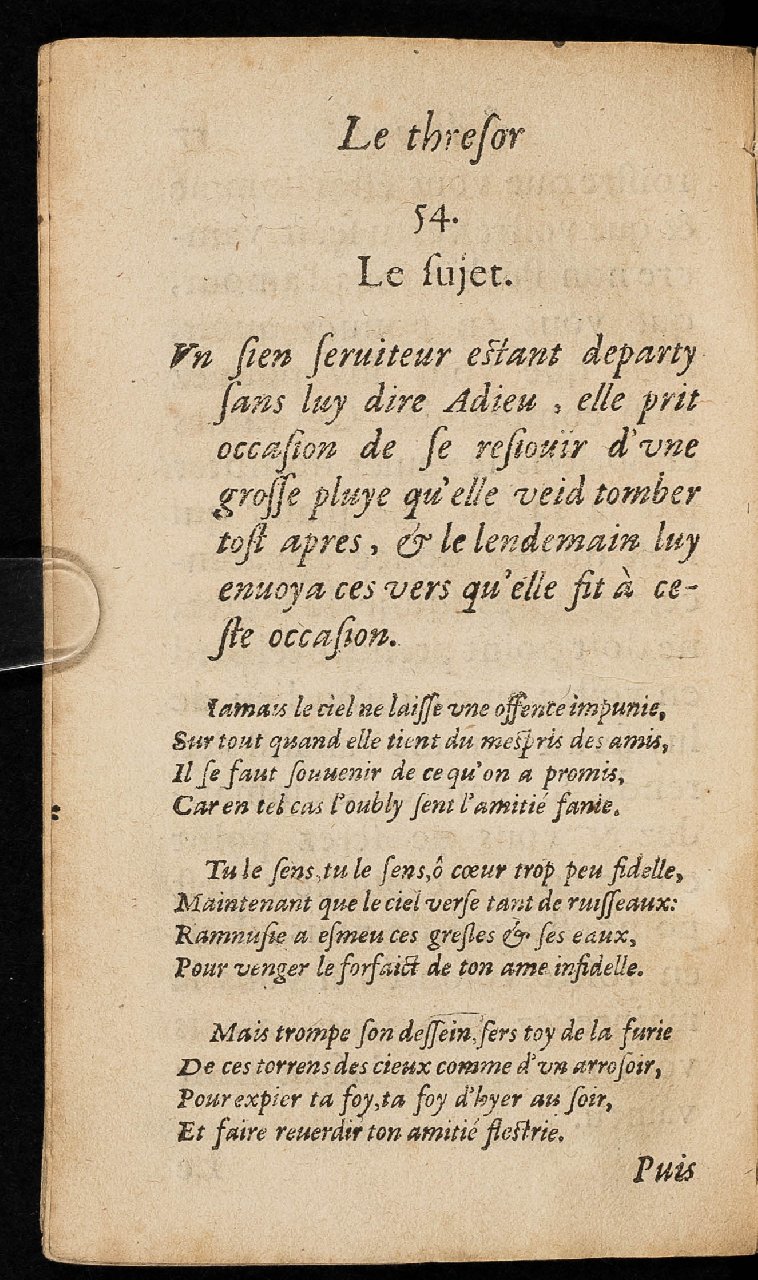 Le threſor
54.
Le ſujet.
Vn ſien ſeruiteur eſtant departy
ſans luy dire Adieu, elle prit
occaſion de ſe reſiouïr d'vne
groſſe pluye qu'elle veid tomber
toſt apres, & le lendemain luy
enuoya ces vers qu'elle fit à ce-
ſte occaſion.
Iamais le ciel ne laiſſe vne offence impunie,
Sur tout quand elle tient du meſpris des amis,
Il ſe faut ſouuenir de ce qu'on a promis,
Car en tel cas l'oubly ſent l'amitié fanie.
Tu le ſens, tu le ſens, ô cœur trop peu fidelle,
Maintenant que le ciel verſe tant de ruiſſeaux:
Ramnuſie a eſmeu ces greſles & ſes eaux,
Pour venger le forfaict de ton ame infidelle.
Mais trompe ſon deſſein, ſers toy de la furie
De ces torrens des cieux comme d'vn arroſoir,
Pour expier ta foy, ta foy d'hyer au ſoir,
Et faire reuerdir ton amitié fleſtrie.
Puis